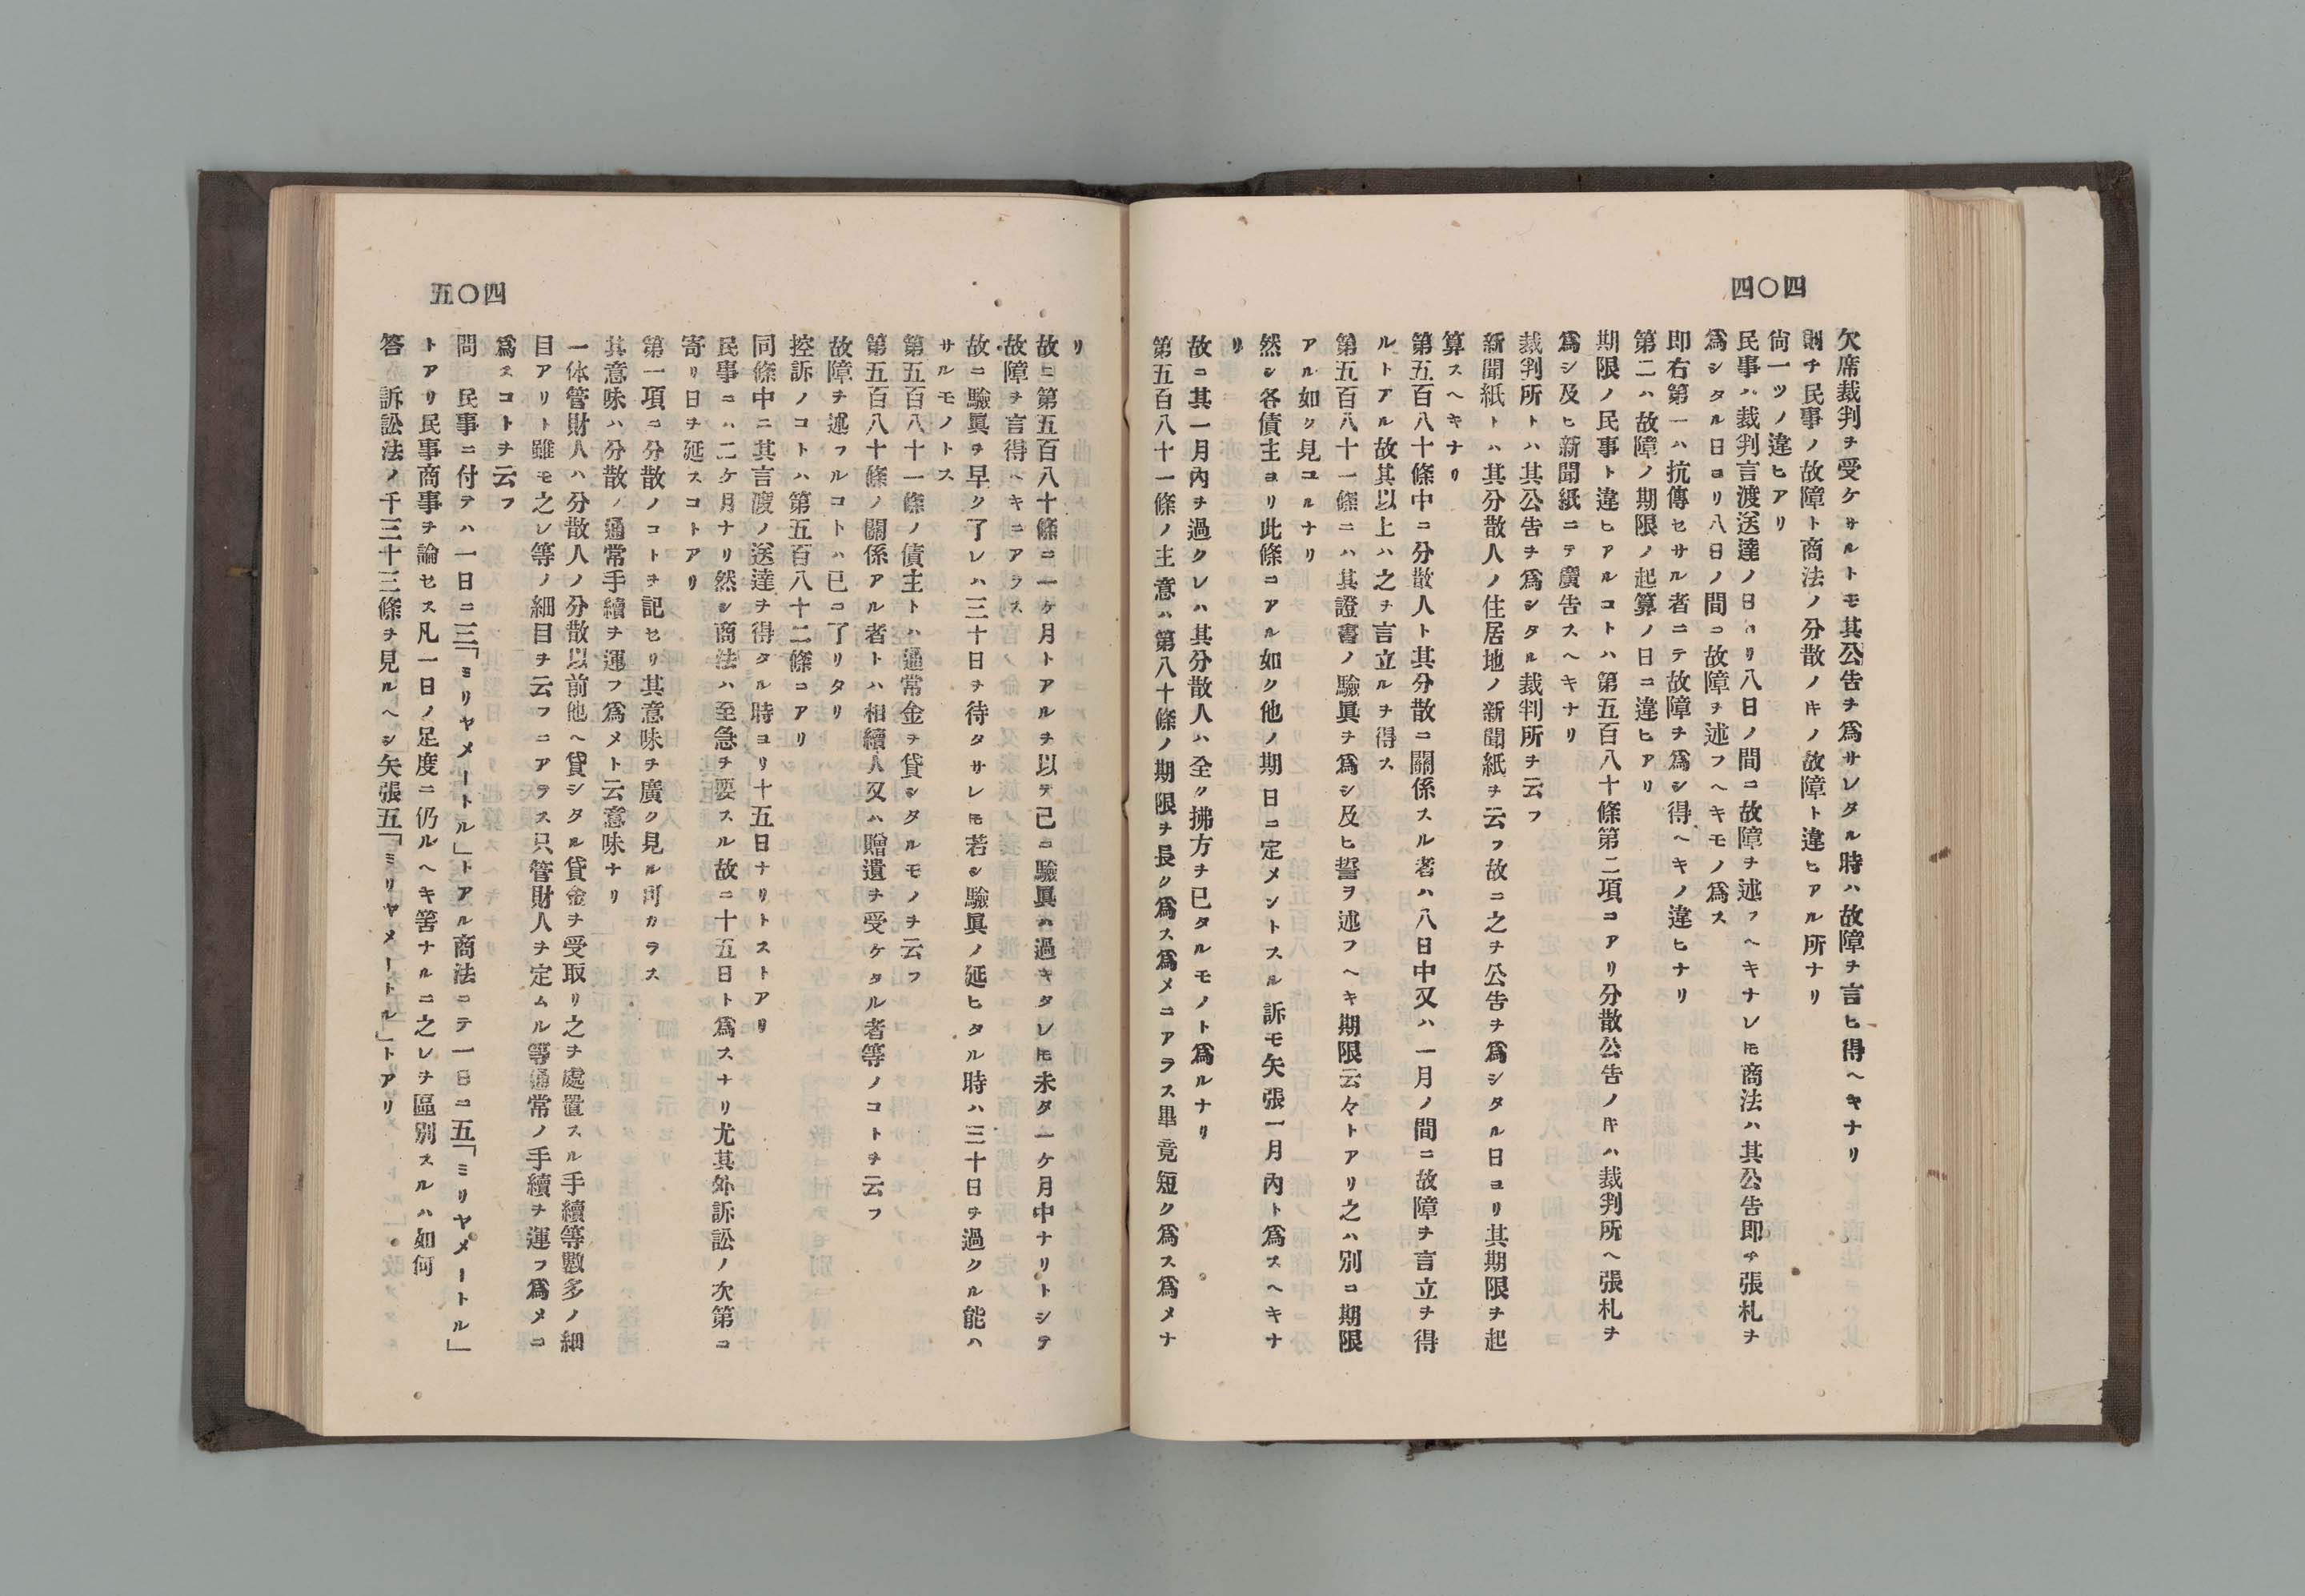 四〇四
欠席裁判ヲ受ケサルトモ其公告ヲ爲サレタル時ハ故障ヲ言ヒ得ヘキナリ
則チ民事ノ故障ト商法ノ分散ノ𪜈ノ故障ト違ヒアル所ナリ
尙一ツノ違ヒアリ
民事ハ裁判言渡送達ノ日ヨリ八日ノ間ニ故障ヲ述フヘキナレ𪜈商法ハ其公告即チ張札ヲ
爲シタル日ヨリ八日ノ間ニ故障ヲ述フヘキモノ爲ス
即右第一ハ抗傳セサル者ニテ故障ヲ爲シ得ヘキノ違ヒナリ
第二ハ故障ノ期限ノ起算ノ日ニ違ヒアリ
期限ノ民事ト違ヒアルコトハ第五百八十條第二項ニアリ分散公告ノ𪜈ハ裁判所ヘ張札ヲ
爲シ及ヒ新聞紙ニテ廣告スヘキナリ
裁判所トハ其公告ヲ爲シタル裁判所ヲ云フ
新聞紙トハ其分散人ノ住居地ノ新聞紙ヲ云フ故ニ之ヲ公告ヲ爲シタル日ヨリ其期限ヲ起
算スヘキナリ
第五百八十條中ニ分散人ト其分散ニ關係スル者ハ八日中又ハ一月ノ間ニ故障ヲ言立ヲ得
ルトアル故其以上ハ之ヲ言立ルヲ得ス
第五百八十一條ニハ其證書ノ驗眞ヲ爲シ及ヒ誓ヲ述フヘキ期限云々トアリ之ハ別ニ期限
アル如ク見ユルナリ
然シ各債主ヨリ此條ニアル如ク他ノ期日ニ定メントスル訴モ矢張一月內ト爲スヘキナ
リ
故ニ其一月內ヲ過クレハ其分散人ハ全ク拂方ヲ已タルモノト爲ルナリ
第五百八十一條ノ主意ハ第八十條ノ期限ヲ長ク爲ス爲メニアラス畢竟短ク爲ス爲メナ
四〇五
リ
故ニ第五百八十條ニ一ケ月トアルヲ以テ已ニ驗眞ハ過キタレ𪜈未タ一ケ月中ナリトシテ
故障ヲ言得ヘキニアラス
故ニ驗眞ヲ早ク了レハ三十日ヲ待タサレ𪜈若シ驗眞ノ延ヒタル時ハ三十日ヲ過クル能ハ
サルモノトス
第五百八十一條ノ債主トハ通常金ヲ貸シタルモノヲ云フ
第五百八十條ノ關係アル者トハ相續人又ハ贈遺ヲ受ケタル者等ノコトヲ云フ
故障ヲ述フルコトハ已ニ了リタリ
控訴ノコトハ第五百八十二條ニアリ
同條中ニ其言渡ノ送達ヲ得タル時ヨリ十五日ナリトストアリ
民事ニハ二ケ月ナリ然シ商法ハ至急ヲ要スル故ニ十五日ト爲スナリ尤其外訴訟ノ次第ニ
寄リ日ヲ延スコトアリ
第一項ニ分散ノコトヲ記セリ其意味ヲ廣ク見ル可カラス
其意味ハ分散ノ通常手續ヲ運フ爲メト云意味ナリ
一体管財人ハ分散人ノ分散以前他ヘ貸シタル貸金ヲ受取リ之ヲ處置スル手續等數多ノ細
目アリト雖モ之レ等ノ細目ヲ云フニアラス只管財人ヲ定ムル等通常ノ手續ヲ運フ爲メニ
爲スコトヲ云フ
問　民事ニ付テハ一日ニ三「ミリヤメートル」トアル商法ニテ一日ニ五「ミリヤメートル」
トアリ民事商事ヲ論セス凡一日ノ足度ニ仍ルヘキ筈ナルニ之レヲ區別スルハ如何
答　訴訟法ノ千三十三條ヲ見ルヘシ矢張五「ミリヤメートル」トアリ